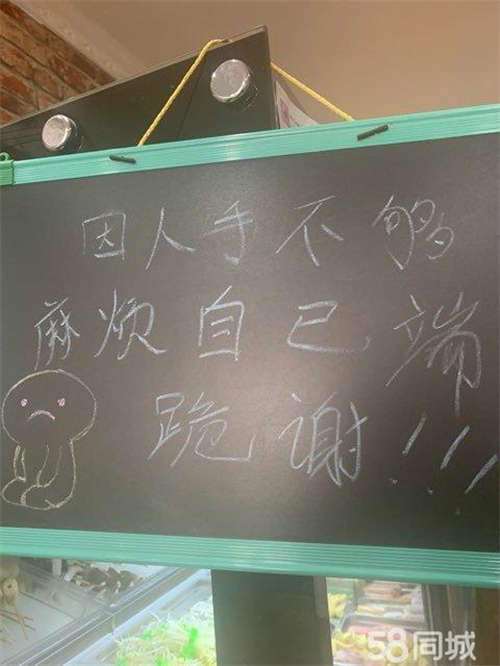 因人手不够
麻烦自己端
跪谢!!!
58同城